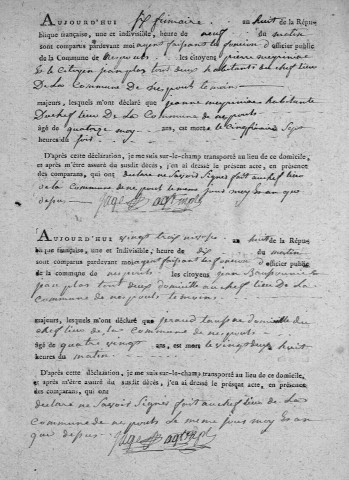 AUJOURD'HUI six frimaire an huit de la Répu-
blique française, une et indivisible, heure de neuf du matin
sont comparus pardevant moi agent faisant les fonctions d'officier public
de la Commune de les citoyens pierre
et le citoyen jean plas tout deux habitants du chef lieu
De la Commune de
majeurs, lesquels m'ont déclaré que jeanne habitante
Du chef lieu De la Commune de
âgé de quatorze moy ans, est morte le cinq frimaire sept
heures du soir
D'après cette déclaration, je me suis sur-le-champ transporté au lieu de ce domicile,
et après m'être assuré du susdit décès, j'en ai dressé le présent acte, en présence
des comparans, qui ont declare ne savoir signer fait au chef lieu
de la Commune de le meme jour moy et an que
dessus
AUJOURD'HUI vingt trois nivose an huit de la Répu-
blique française, une et indivisible, heure de dix du matin
sont comparus pardevant moi agent faisant les fonctions d'officier public
de la commune de les citoyens jean
jean plas tout deux domicilie au chef lieu De La
Commune de
majeurs, lesquels m'ont déclaré que domicilie du
chef lieu de la Commune de
âgé de quatre vingt ans, est mort le vingt deux huit
heures du matin
D'après cette déclaration, je me suis sur-le-champ transporté au lieu de ce domicile,
et après m'être assuré du susdit décès, j'en ai dressé le présent acte, en présence
des comparans, qui ont
declare ne savoir signer fait au chef lieu de la
Commune de le meme jour moy et an
que dessus